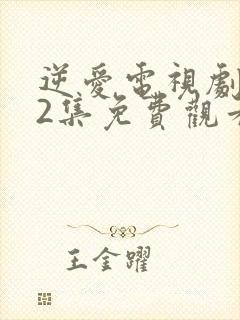 逆愛電視劇
2集免費觀看
王金躍